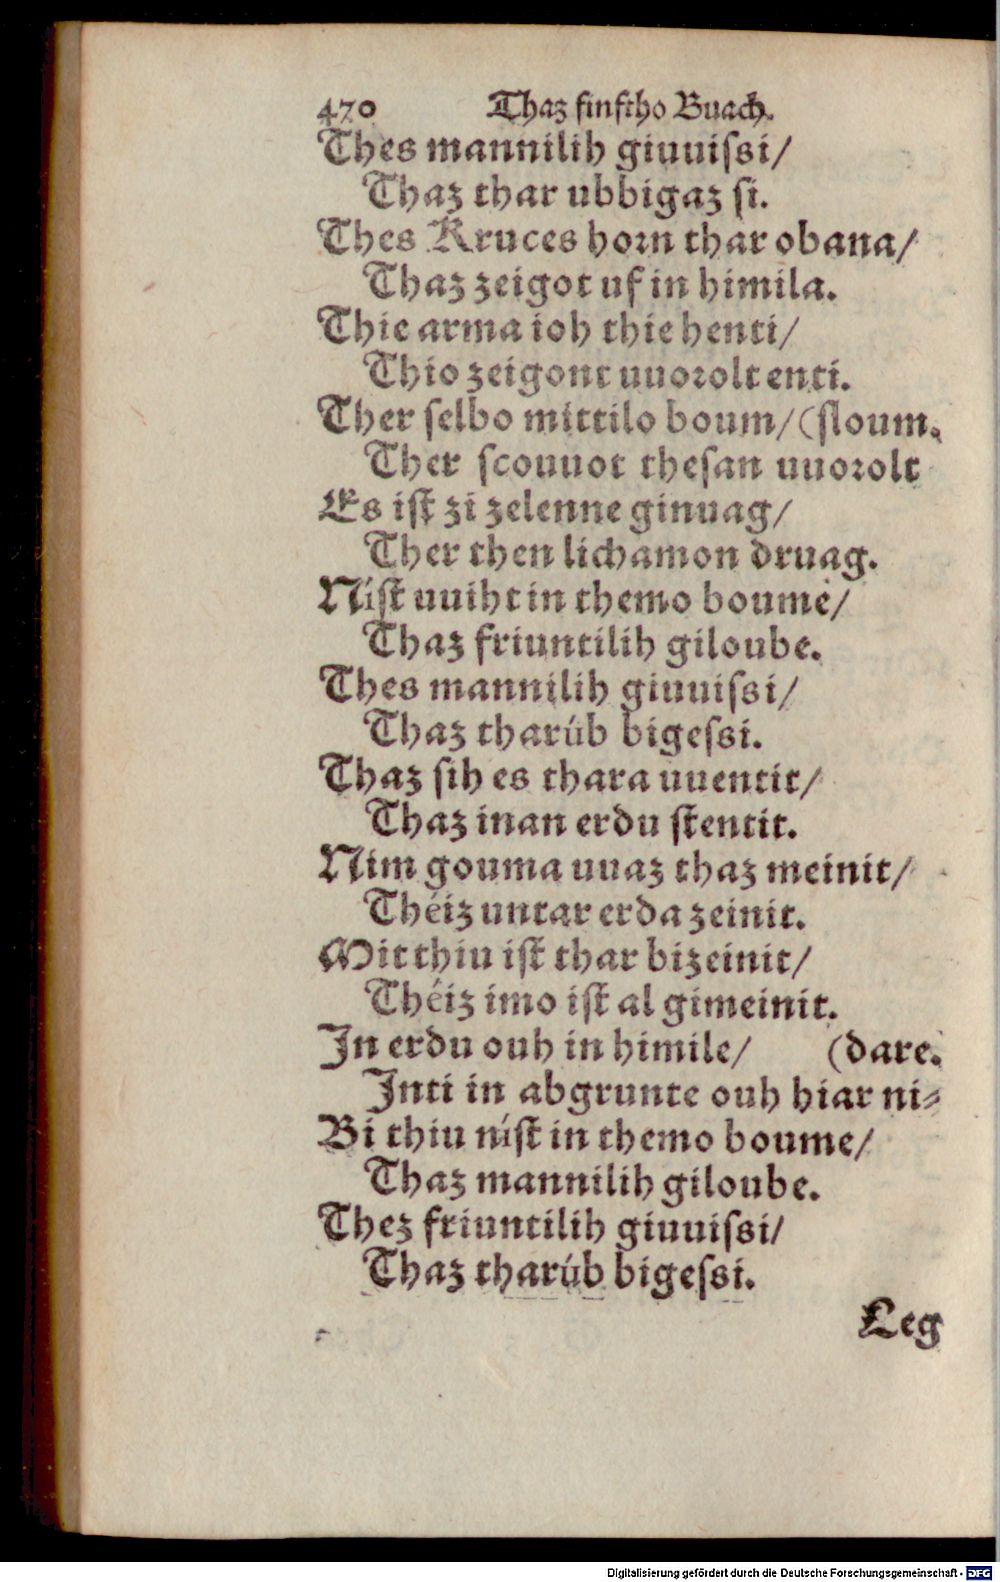 470 Thaz finftho Buach.
Thes mannilih giuuiſsi/
Thaz thar ubbigaz ſi.
Thes Kruces horn thar obana/
Thaz zeigot uf in himila.
Thie arma ioh thie henti/
Thio zeigont uuorolt enti.
Ther ſelbo mittilo boum/ (ſloum.
Ther scouuot theſan uuorolt
Es iſt zi zelenne ginuag/
Ther then lichamon druag.
Níſt uuiht in themo boume/
Thaz friuntilih giloube.
Thes mannilih giuuiſsi/
Thaz tharúb bigeſsi.
Thaz ſih es thara uuentit/
Thaz inan erdu ſtentit.
Nim gouma uuaz thaz meinit/
Théiz untar erda zeinit.
Mit thiu iſt thar bizeinit/
Théiz imo iſt al gimeinit.
In erdu ouh in himile/ (dare.
Inti in abgrunte ouh hiar ni⸗
Bi thiu níſt in themo boume/
Thaz mannilih giloube.
Thez friuntilih giuuiſsi/
Thaz tharúb bigeſsi.
Leg
Digitalisierung gefördert durch die Deutsche Forschungsgemeinschaft - DFG